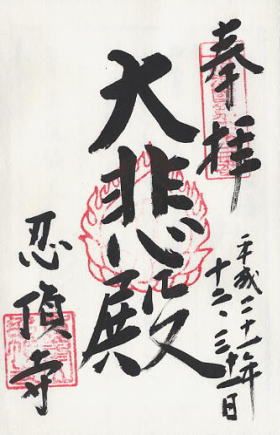 奉拝
平成二十一年
十二、三十一日
大悲殿
忍頂寺